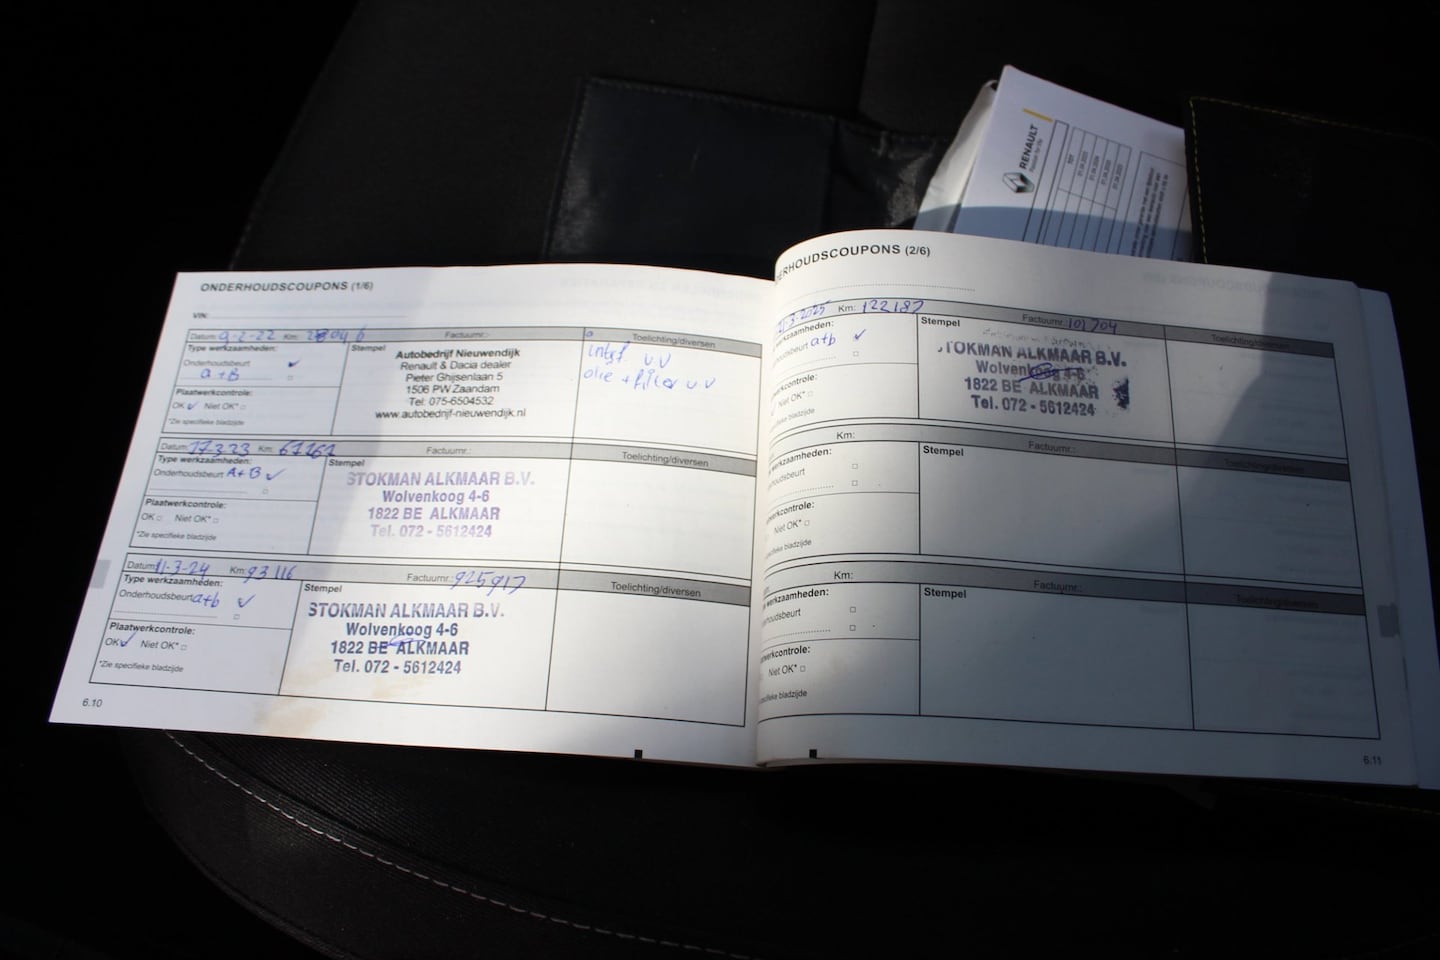 RENAULT
Passion for life
TOT
ONDERHOUDSCOUPONS (1/6)
VIN:
Datum: 9-2-22 Km: Factuurnr.: Toelichting/diversen
Type werkzaamheden:
Onderhoudsbeurt ✓
a + B
Plaatwerkcontrole:
OK ✓ Niet OK* □
*Zie specifieke bladzijde
Stempel
Autobedrijf Nieuwendijk
Renault & Dacia dealer
Pieter Ghijsenlaan 5
1506 PW Zaandam
Tel: 075-6504532
www.autobedrijf-nieuwendijk.nl
olie + filter v.v
Datum: 17-3-23 Km: 67161 Factuurnr.: Toelichting/diversen
Type werkzaamheden:
Onderhoudsbeurt A+B ✓
Plaatwerkcontrole:
OK □ Niet OK* □
*Zie specifieke bladzijde
Stempel
STOKMAN ALKMAAR B.V.
Wolvenkoog 4-6
1822 BE ALKMAAR
Tel. 072 - 5612424
Datum: 11-3-24 Km: 93116 Factuurnr.: 925917 Toelichting/diversen
Type werkzaamheden:
Onderhoudsbeurt a+b ✓
Plaatwerkcontrole:
OK ✓ Niet OK* □
*Zie specifieke bladzijde
Stempel
STOKMAN ALKMAAR B.V.
Wolvenkoog 4-6
1822 BE ALKMAAR
Tel. 072 - 5612424
6.10
ERHOUDSCOUPONS (2/6)
21-3-2025 Km: 122187 Factuurnr. 101704 Toelichting/diversen
werkzaamheden:
houdsbeurt a+b ✓
werkcontrole:
Niet OK* □
specifieke bladzijde
Stempel
TOKMAN ALKMAAR B.V.
Wolvenkoog 4-6
1822 BE ALKMAAR
Tel. 072 - 5612424
Km: Factuurnr.: Toelichting/diversen
werkzaamheden:
houdsbeurt □
□
werkcontrole:
Niet OK* □
specifieke bladzijde
Stempel
Km: Factuurnr.: Toelichting/diversen
werkzaamheden:
houdsbeurt □
□
werkcontrole:
Niet OK* □
specifieke bladzijde
Stempel
6.11